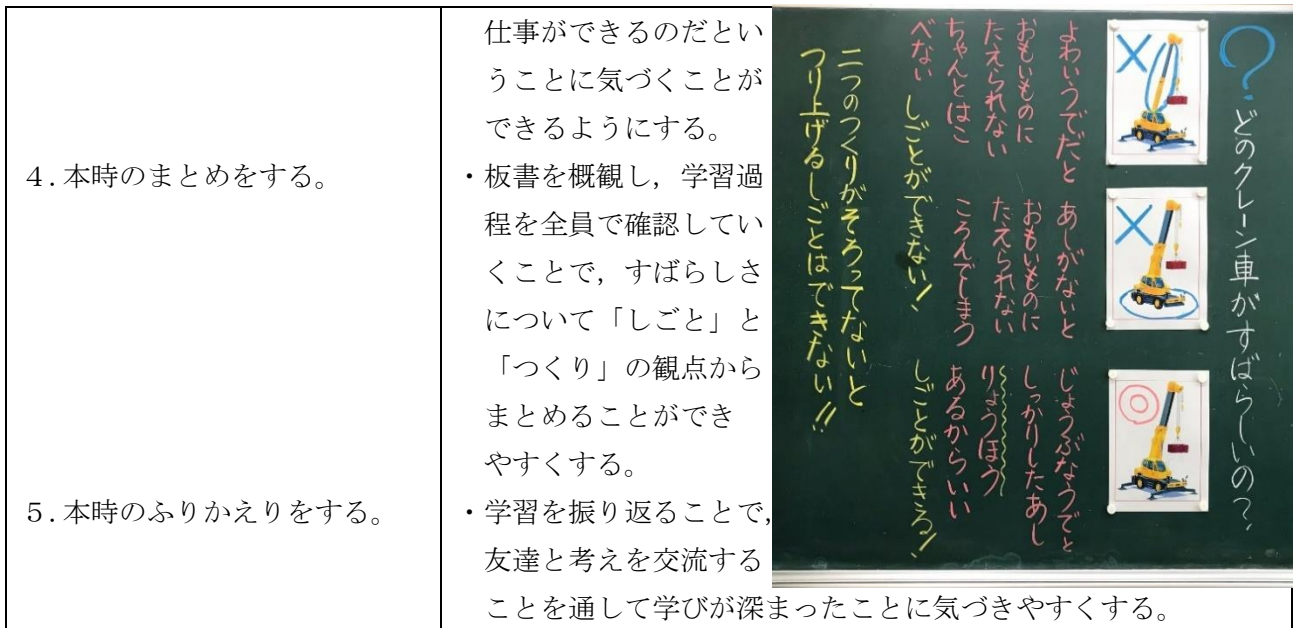 仕事ができるのだとい
うことに気づくことが
できるようにする。
４.本時のまとめをする。
・板書を概観し，学習過
程を全員で確認してい
くことで，すばらしさ
について「しごと」と
「つくり」の観点から
まとめることができ
やすくする。
５.本時のふりかえりをする。
・学習を振り返ることで，
友達と考えを交流する
ことを通して学びが深まったことに気づきやすくする。
？どのクレーン車がすばらしいの？
よわいうでだと
おもいものに
たえられない
ちゃんとはこ
べない
しごとができない！
あしがないと
おもいものに
たえられない
ころんでしまう
じょうぶなうでと
しっかりしたあし
りょうほう
あるからいい
しごとができる！
二つのつくりがそろってないと
つり上げるしごとはできない！！